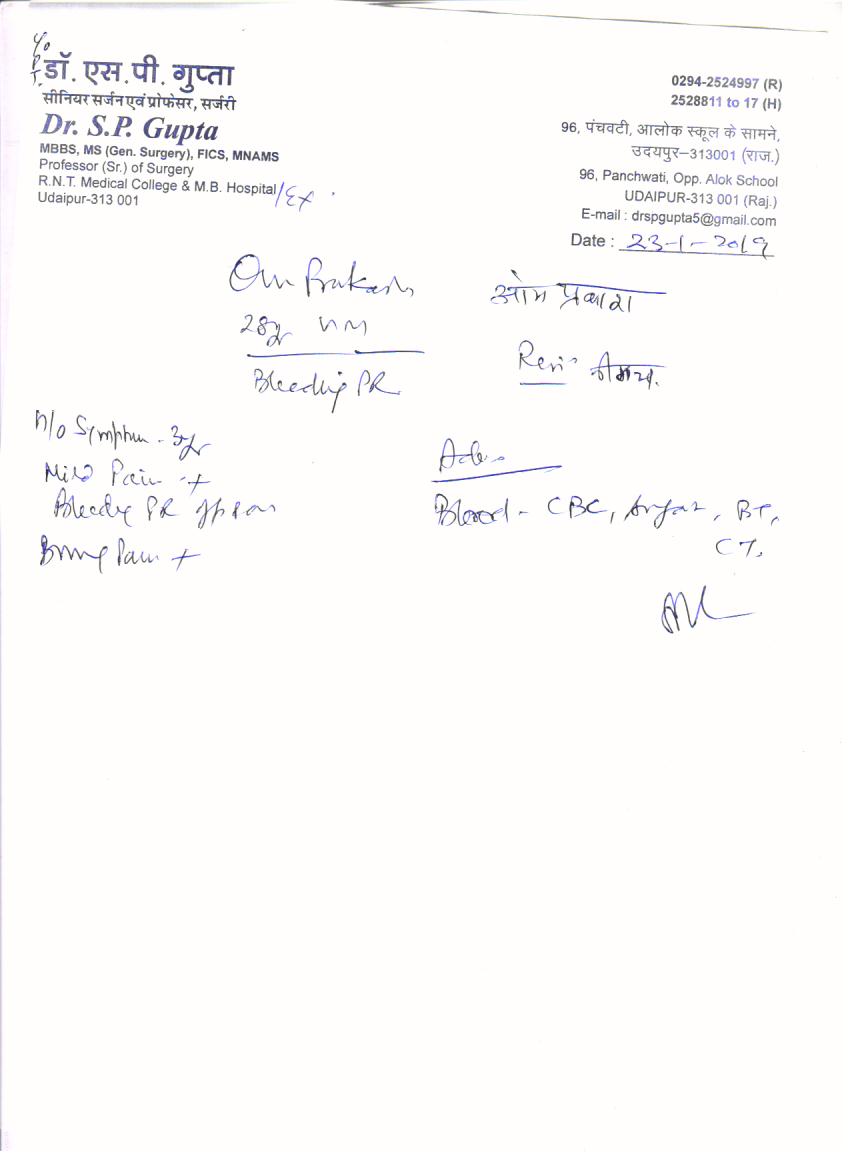 डॉ. एस.पी. गुप्ता
सीनियर सर्जन एवं प्रोफेसर, सर्जरी
Dr. S.P. Gupta
MBBS, MS (Gen. Surgery), FICS, MNAMS
Professor (Sr.) of Surgery
R.N.T. Medical College & M.B. Hospital/Ex
Udaipur-313 001
0294-2524997 (R)
2528811 to 17 (H)
96, पंचवटी, आलोक स्कूल के सामने,
उदयपुर–313001 (राज.)
96, Panchwati, Opp. Alok School
UDAIPUR-313 001 (Raj.)
E-mail : drspgupta5@gmail.com
Date : 23-1-2019
Om Prakash
28yr
Bleeding PR
ओम प्रकाश
H/o Symptom - 3yr
Mild Pain +
Bleeding PR
Pain +
Blood - CBC, Sugar, BT,
CT,